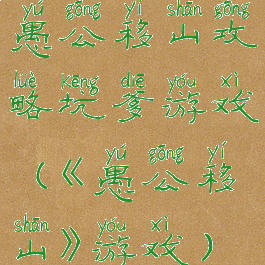 yú gōng yí shān gōng
愚公移山攻
lüè kēng diē yóu xì
略坑爹游戏
yú gōng yí
(《愚公移
shān yóu xì
山》游戏)